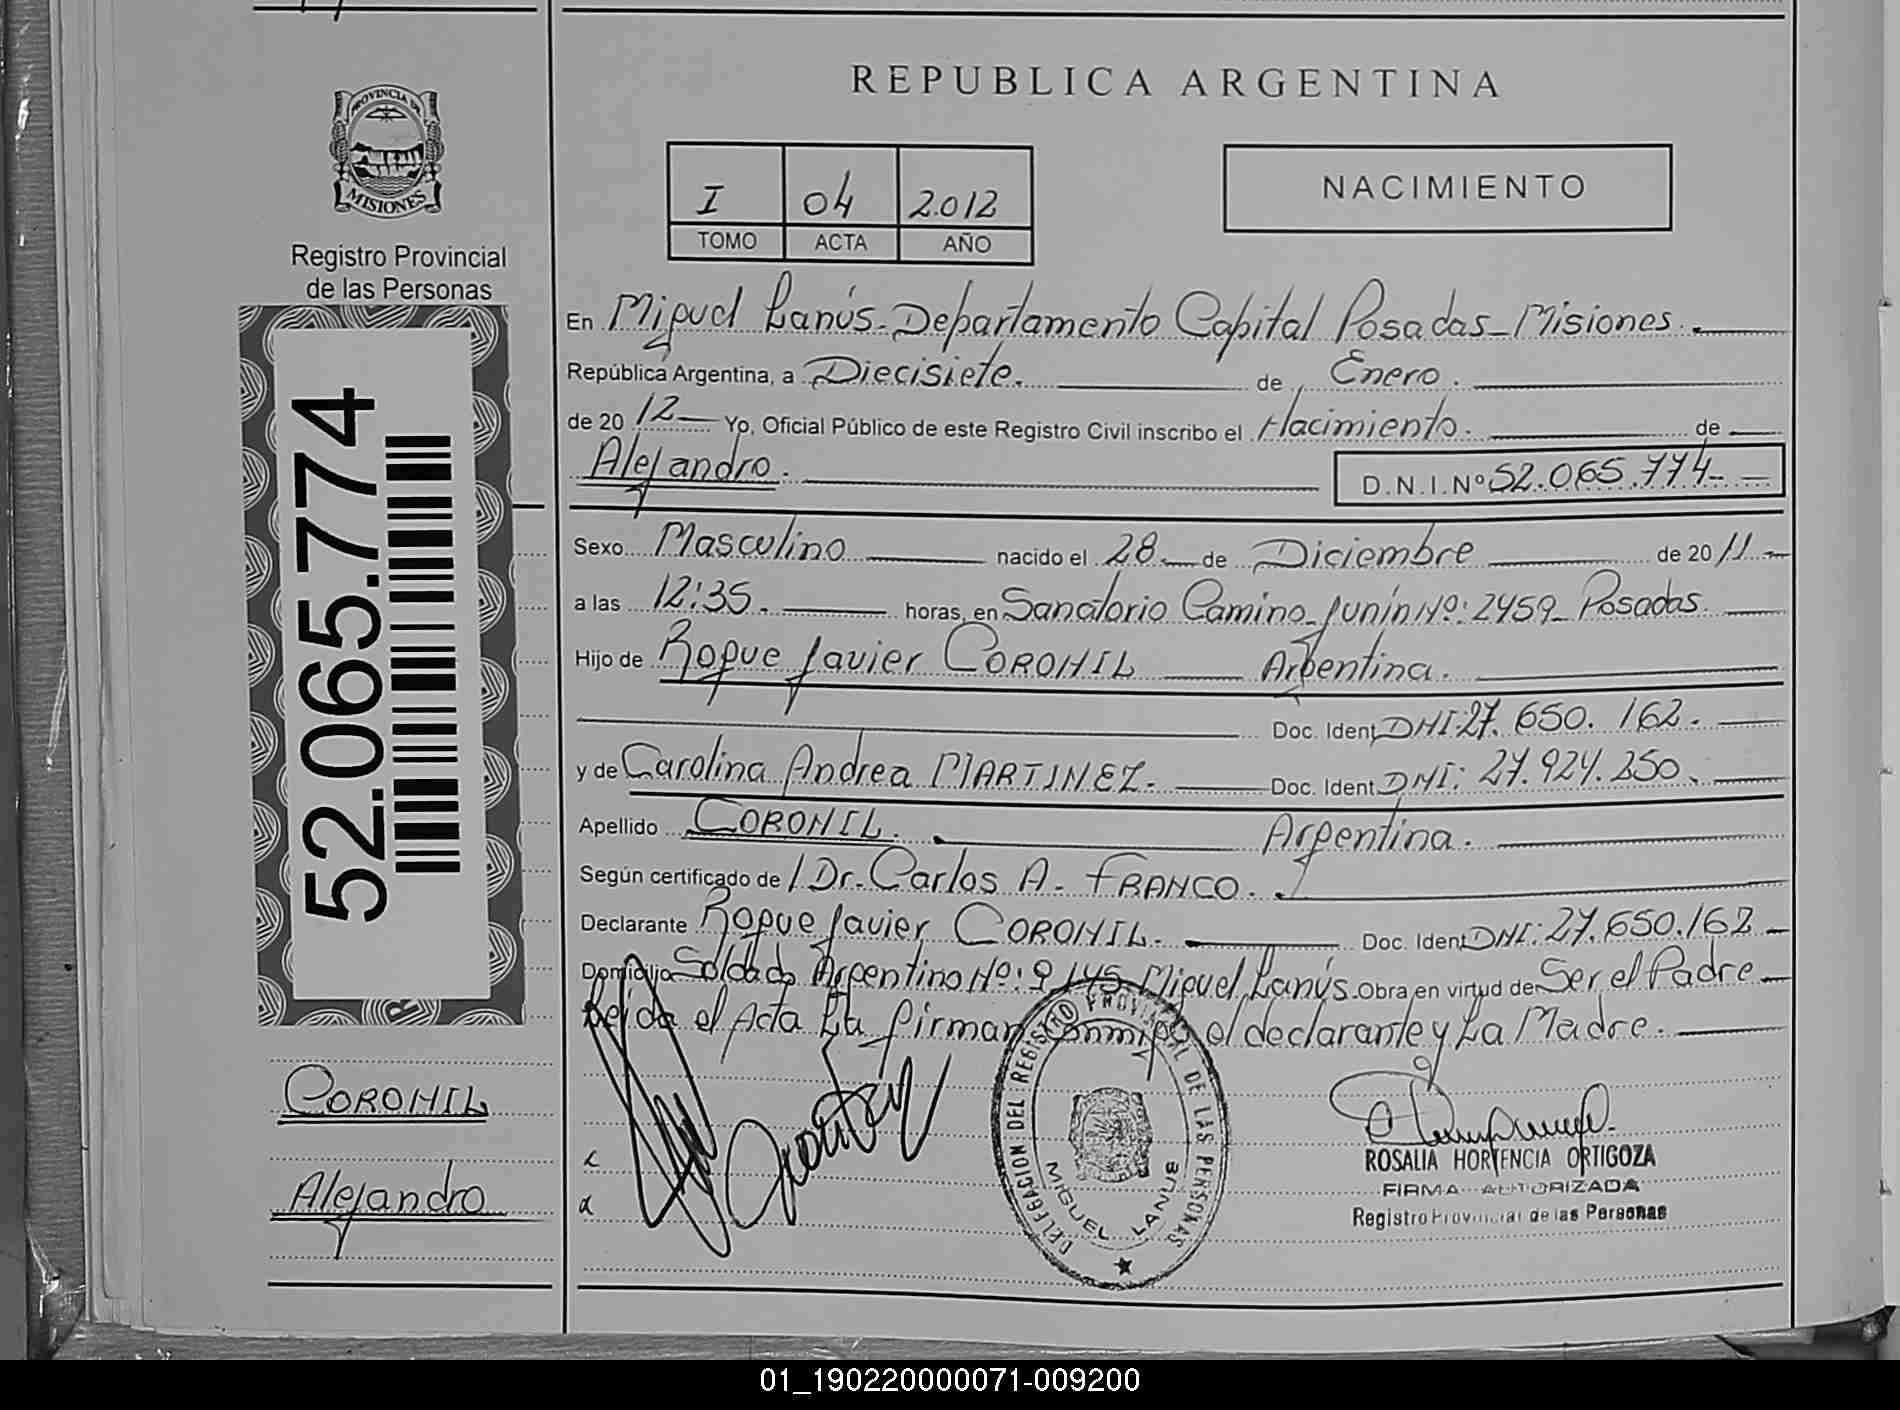 REPUBLICA ARGENTINA
PROVINCIA DE
MISIONES
Registro Provincial
de las Personas
I 04 2.012
TOMO ACTA AÑO
NACIMIENTO
52.065.774
En Miguel Lanús-Departamento Capital Posadas-Misiones.
República Argentina, a Diecisiete. de Enero.
de 20 12 Yo, Oficial Público de este Registro Civil inscribo el Nacimiento. de
Alejandro. D.N.I.Nº 52.065.774
Sexo Masculino nacido el 28 de Diciembre de 20 11
a las 12:35. horas, en Sanatorio Camino-Junín Nº: 2459-Posadas.
Hijo de Roque Javier CORONIL Argentina.
Doc. Ident DNI:27.650.162.
y de Carolina Andrea MARTINEZ. Doc. Ident DNI: 27.924.250.
Apellido CORONIL. Argentina.
Según certificado de Dr. Carlos A. FRANCO.
Declarante Roque Javier CORONIL. Doc. Ident DNI: 27.650.162
Domicilio Soldado Argentino Nº: 9145 Miguel Lanús. Obra en virtud de Ser el Padre
Leida el Acta La firman conmigo el declarante y La Madre.
CORONIL
Alejandro
DELEGACION DEL REGISTRO PROVINCIAL DE LAS PERSONAS
MIGUEL LANUS
ROSALIA HORTENCIA ORTIGOZA
FIRMA AUTORIZADA
Registro Provincial de las Personas
01_190220000071-009200